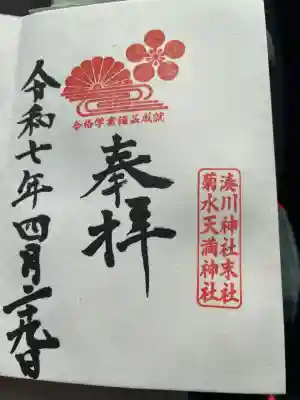 合格学業諸芸成就
湊川神社末社
菊水天満神社
奉拝
令和七年四月二十九日